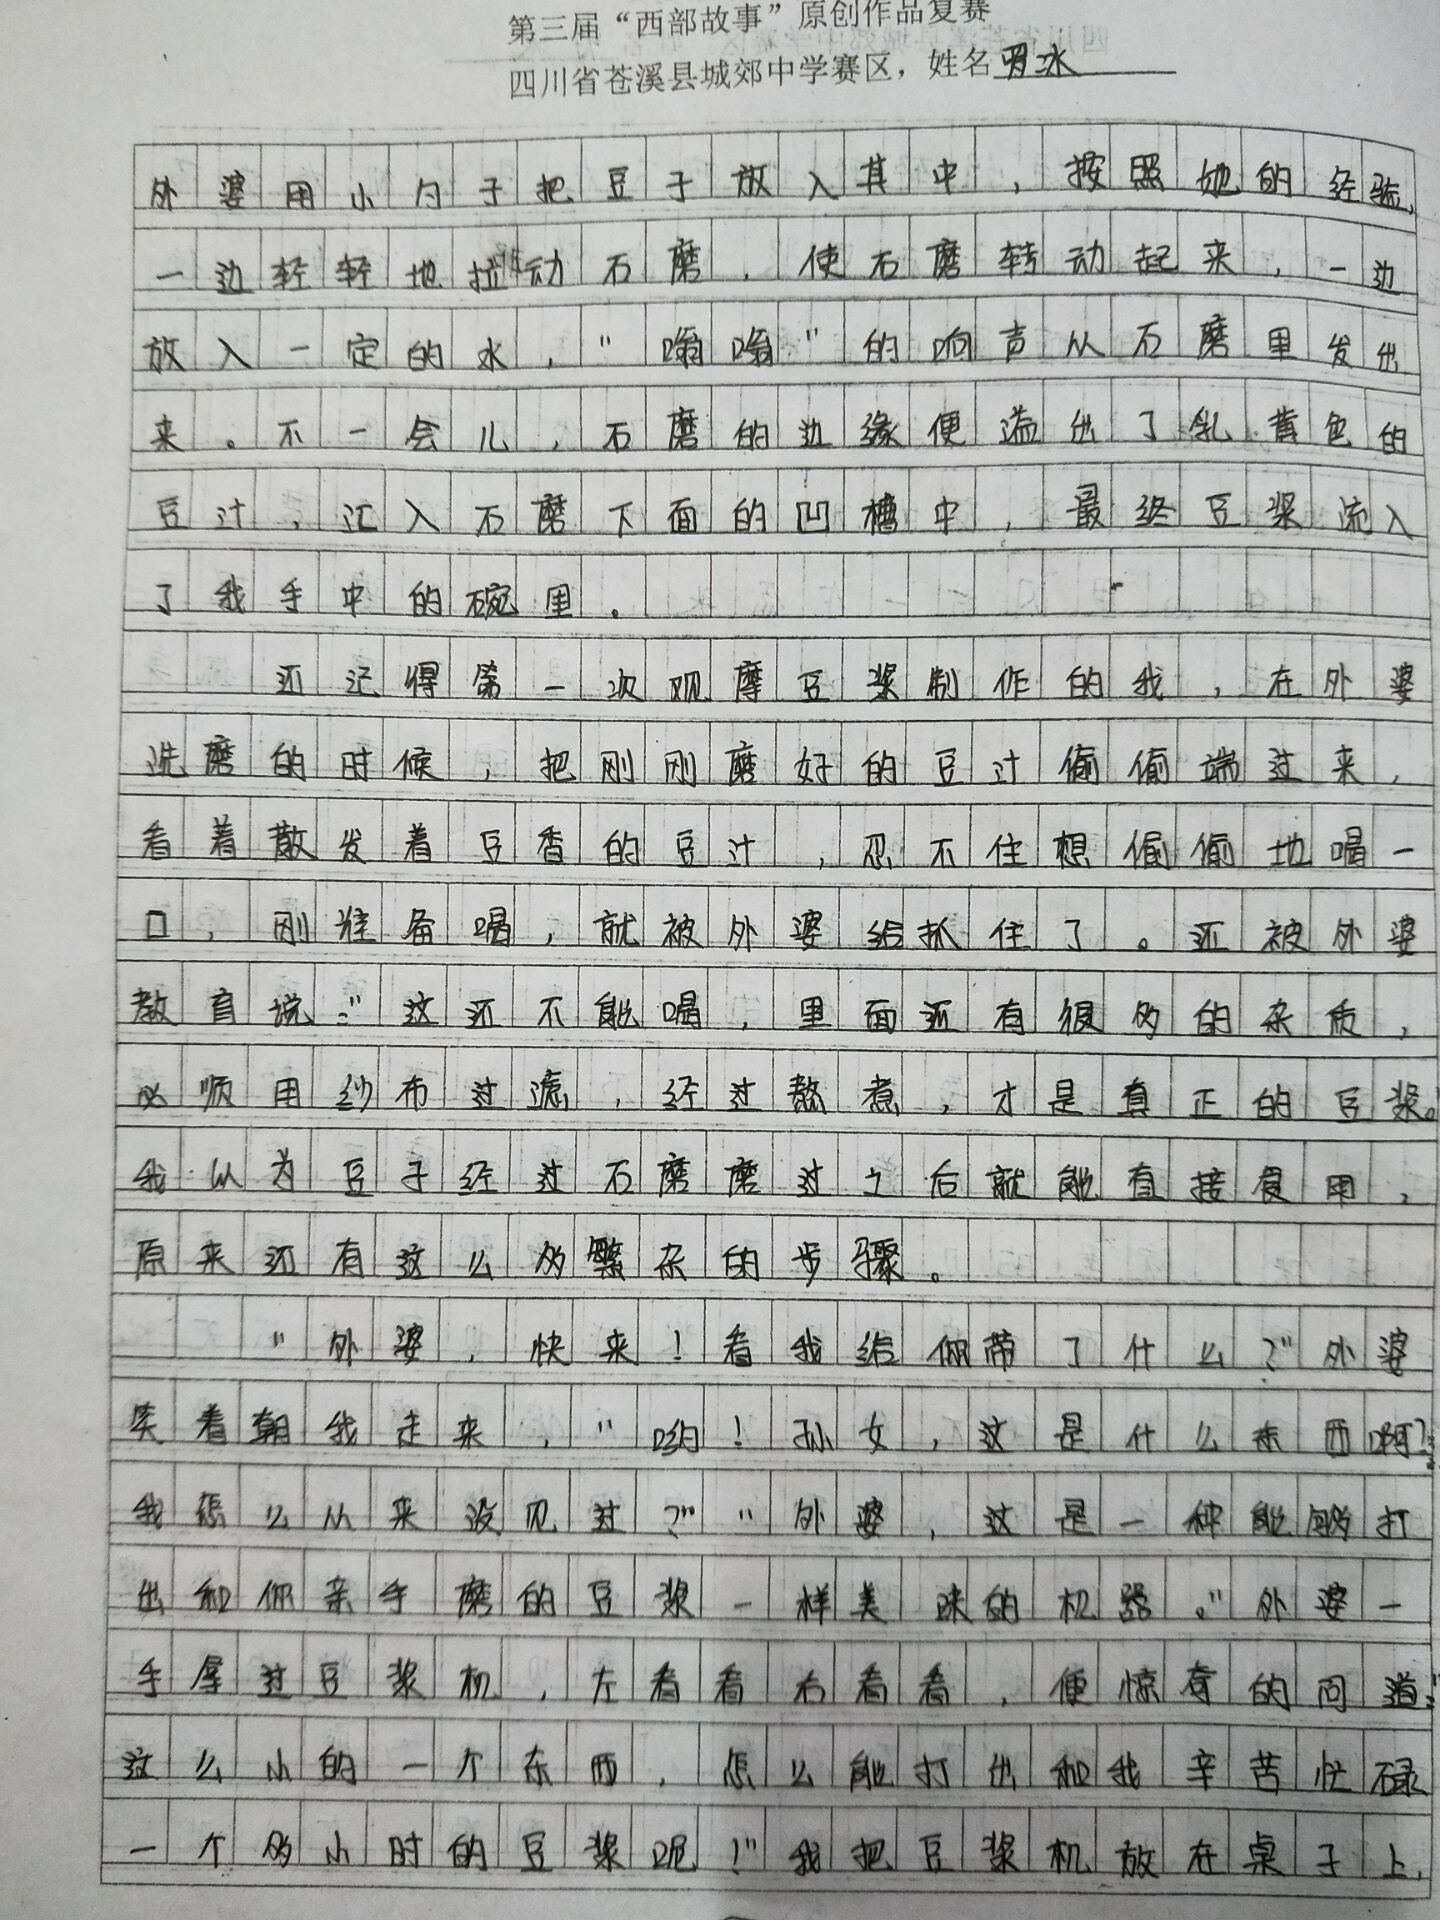 第三届“西部故事”原创作品复赛
四川省苍溪县城郊中学赛区，姓名罗冰
外婆用小勺子把豆子放入其中，按照她的经验，
一边轻轻地拉动石磨，使石磨转动起来，一边
放入一定的水，“嗡嗡”的响声从石磨里发出
来。不一会儿，石磨的边缘便溢出了乳黄色的
豆汁，汇入石磨下面的凹槽中，最终豆浆流入
了我手中的碗里。
还记得第一次观摩豆浆制作的我，在外婆
洗磨的时候，把刚刚磨好的豆汁偷偷端过来，
看着散发着豆香的豆汁，忍不住想偷偷地喝一
口，刚准备喝，就被外婆给抓住了。还被外婆
教育说：“这还不能喝，里面还有很多的杂质，
必须用纱布过滤，经过熬煮，才是真正的豆浆。
我以为豆子经过石磨磨过之后就能直接食用，
原来还有这么多繁杂的步骤。
“外婆，快来！看我给你带了什么？”外婆
笑着朝我走来，“哟！孙女，这是什么东西啊？
我怎么从来没见过？”“外婆，这是一种能够打
出和你亲手磨的豆浆一样美味的机器。”外婆一
手摩过豆浆机，左看看右看看，便惊奇的问道：“
这么小的一个东西，怎么能打出和我辛苦忙碌
一个多小时的豆浆呢！”我把豆浆机放在桌子上，